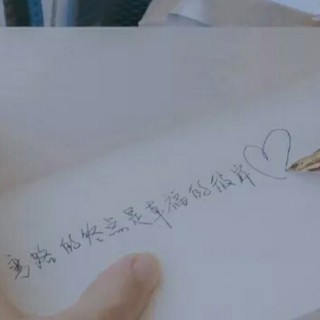 弯路的终点是幸福的彼岸